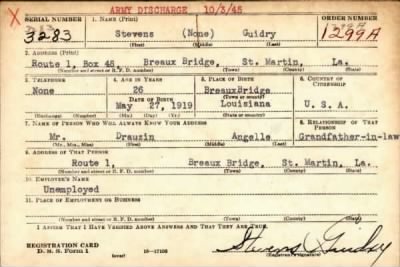 ARMY DISCHARGE 10/3/45
SERIAL NUMBER 1. NAME (Print) ORDER NUMBER
3283 Stevens (None) Guidry 1299A
(First) (Middle) (Last)
2. ADDRESS (Print)
Route 1, Box 48 Breaux Bridge, St. Martin, La.
(Number and street or R. F. D. number) (Town) (County) (State)
3. TELEPHONE 4. AGE IN YEARS 5. PLACE OF BIRTH 6. COUNTRY OF CITIZENSHIP
None 26 BreauxBridge
DATE OF BIRTH (Town or county)
May 27, 1919 Louisiana U. S. A.
(Exchange) (Number) (Mo.) (Day) (Yr.) (State or country)
7. NAME OF PERSON WHO WILL ALWAYS KNOW YOUR ADDRESS 8. RELATIONSHIP OF THAT PERSON
Mr. Drauzin Angelle Grandfather-in-law
(Mr., Mrs., Miss) (First) (Middle) (Last)
9. ADDRESS OF THAT PERSON
Route 1, Breaux Bridge, St. Martin, La.
(Number and street or R. F. D. number) (Town) (County) (State)
10. EMPLOYER'S NAME
Unemployed
11. PLACE OF EMPLOYMENT OR BUSINESS
(Number and street or R. F. D. number) (Town) (County) (State)
I AFFIRM THAT I HAVE VERIFIED ABOVE ANSWERS AND THAT THEY ARE TRUE.
REGISTRATION CARD
D. S. S. Form 1 (over) 16-17105 Stevens Guidry
(Registrant's signature)